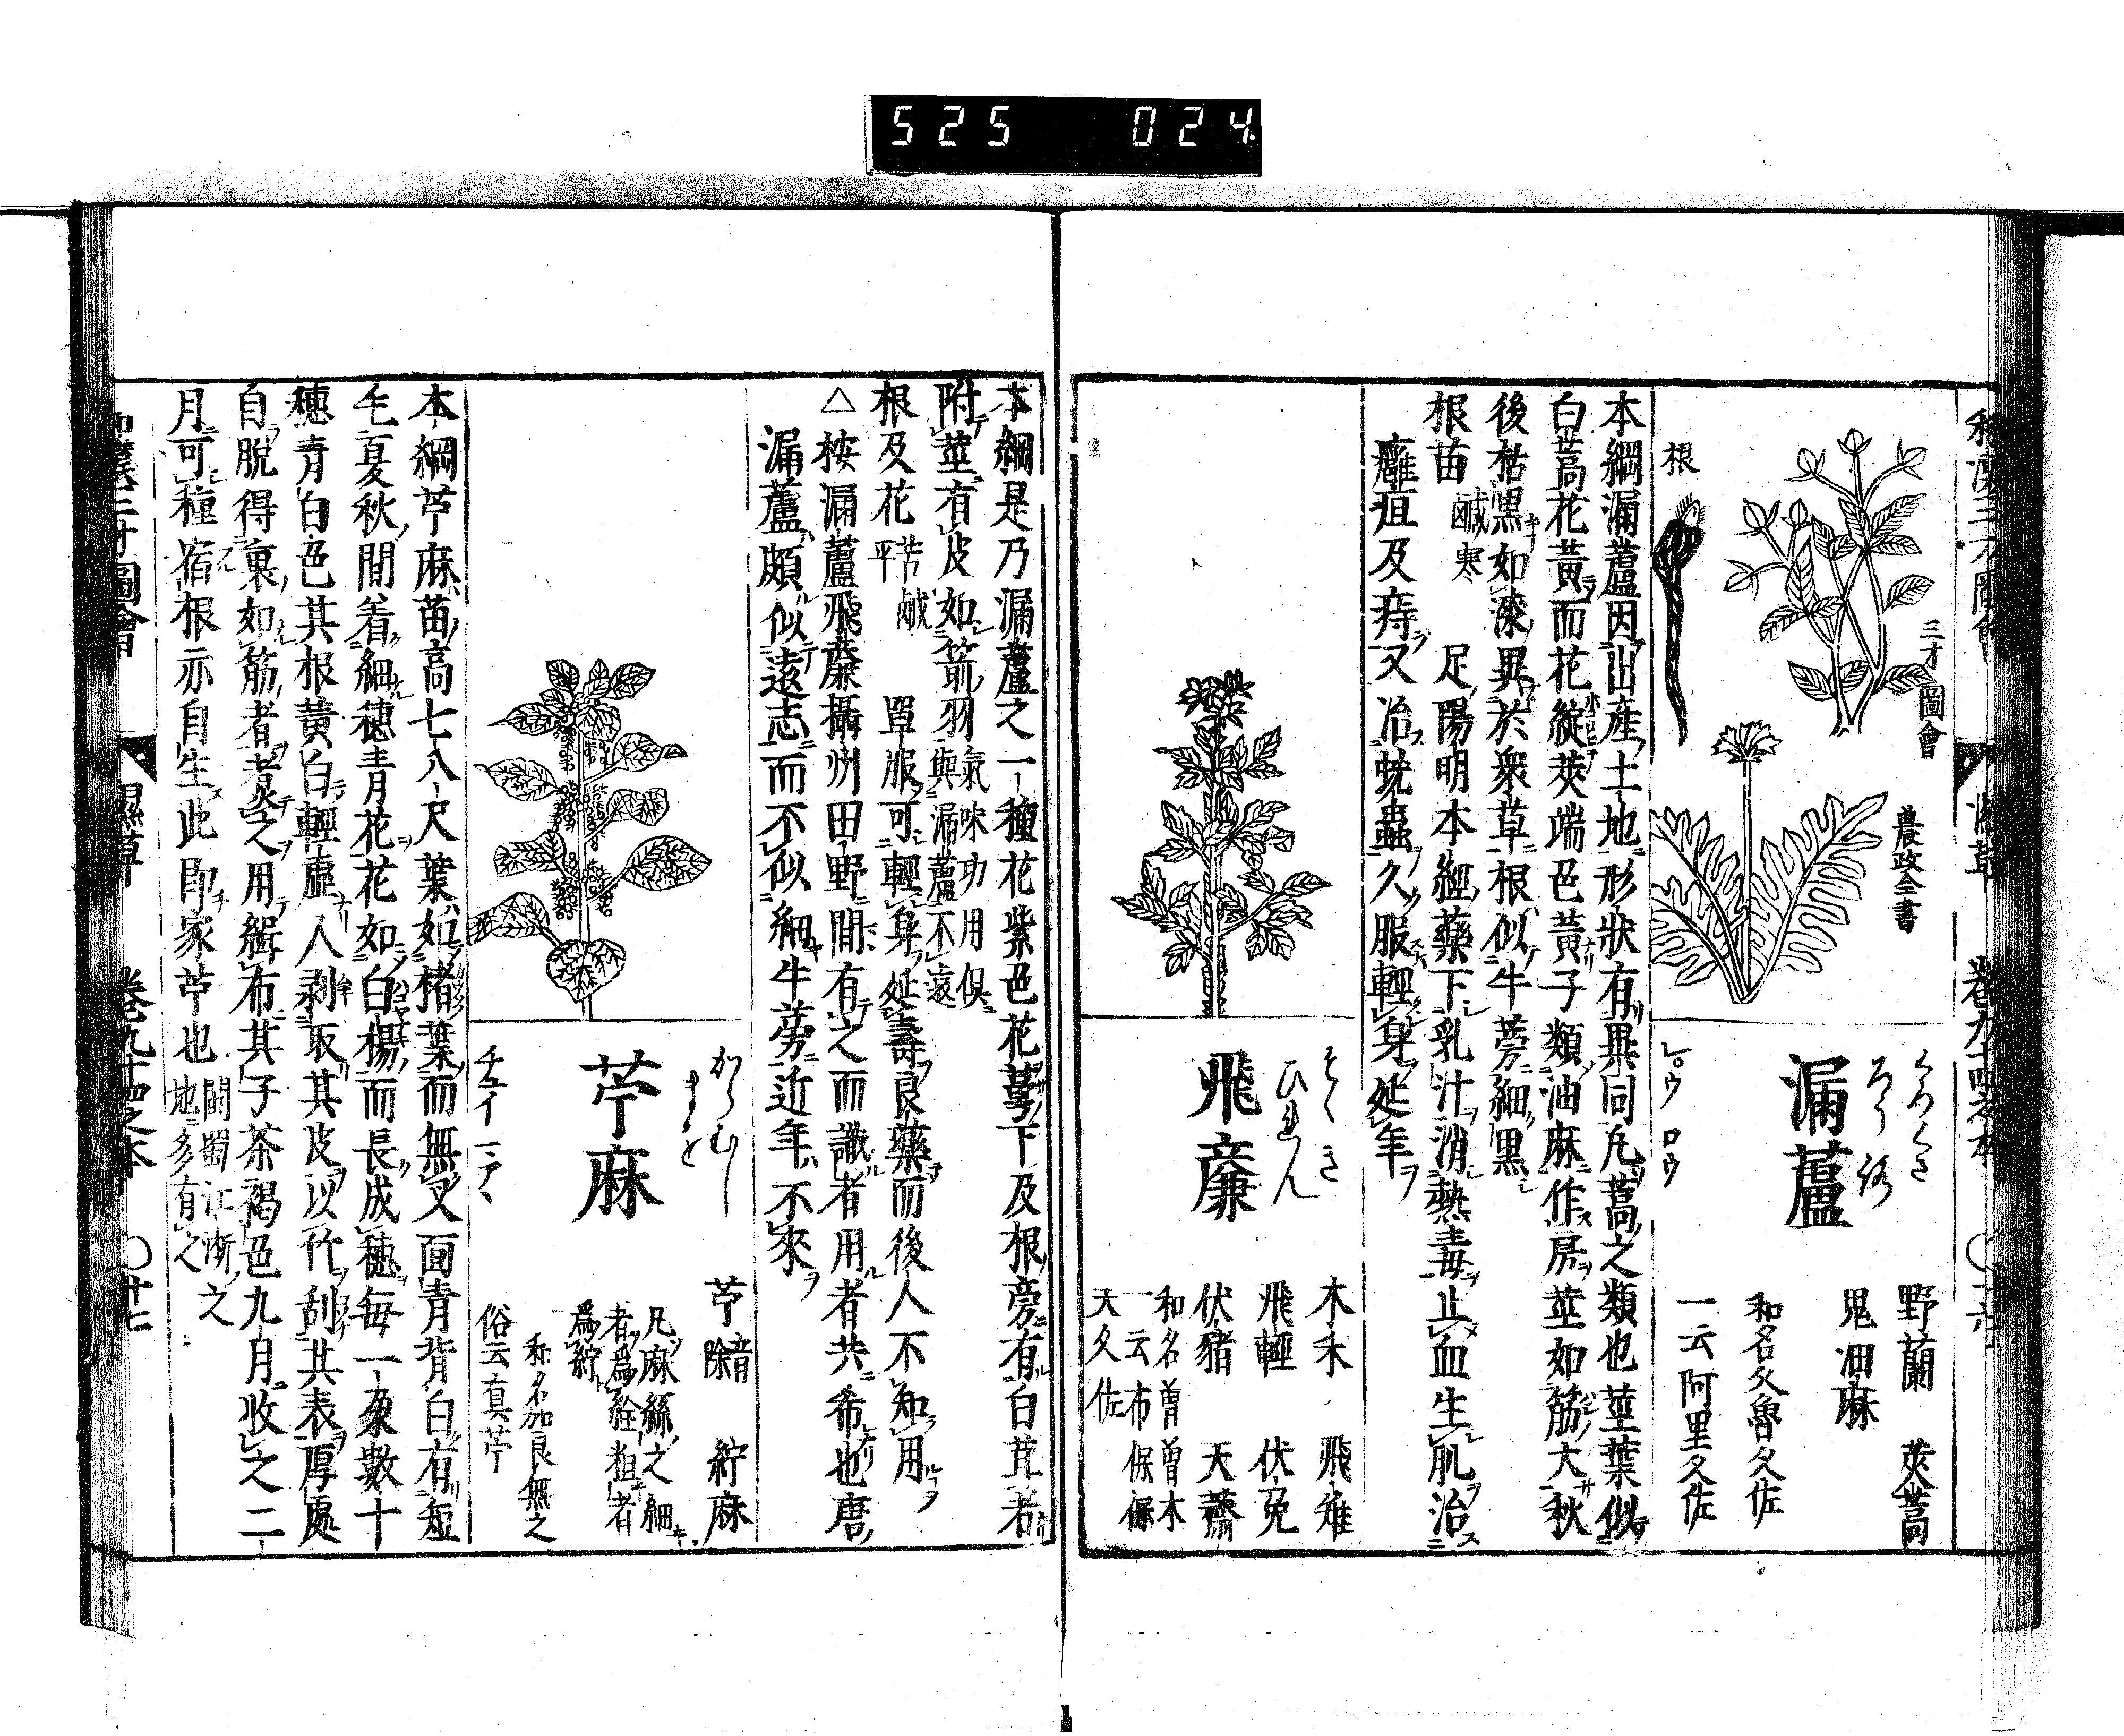 525 024
和漢三才圖會 濕草 卷九十四之本 〇廿六
三才圖會
根
農政全書
くろくさ
ろう
漏蘆
レ゚ウ ロウ
野蘭 莢蒿
鬼油麻
和名久魯久佐
一云阿里久佐
本綱漏蘆因出産土地形狀有異同凡蒿之類也莖葉似
白蒿花黃而花綻莢端色黃子類油麻作房莖如筋大秋
後枯黑如漆異於衆草根似牛蒡細黑
根苗 鹹寒 足陽明本經藥下乳汁消熱毒止血生肌治
癰疽及痔又治蚘蟲久服輕身延年
ひれん
飛廉
木禾 飛雉
飛輕 伏兔
伏猪 天薺
和名曽曽木
一云布保保
天久佐
本綱是乃漏蘆之一種花紫色花萼下及根旁有白茸者
附莖有皮如箭羽 氣味功用俱
與漏蘆不遠
根及花 苦鹹
平 單服可輕身延壽良藥而後人不知用
△按漏蘆飛廉攝州田野間有之而識者用者共希也唐
漏蘆頗似遠志而不似細牛蒡近年不來
からむし
まを
苧麻
チユイ マアヽ
苧音除 紵麻
凡麻絲之細
者爲絟粗者
爲紵
和名加良無之
俗云真苧
本綱苧麻苗高七八尺葉如楮葉而無叉面青背白有短
毛夏秋間着細穗青花花如白楊而長成穗每一朶數十
穗青白色其根黄白輕虛人剥取其皮以竹刮其表厚處
自脱得裏如筋者煮之用緝布其子茶褐色九月收之二
月可種宿根亦自生此卽家苧也 閩蜀江浙之
地多有之
和漢三才圖會 濕草 卷九十四之本 〇廿七